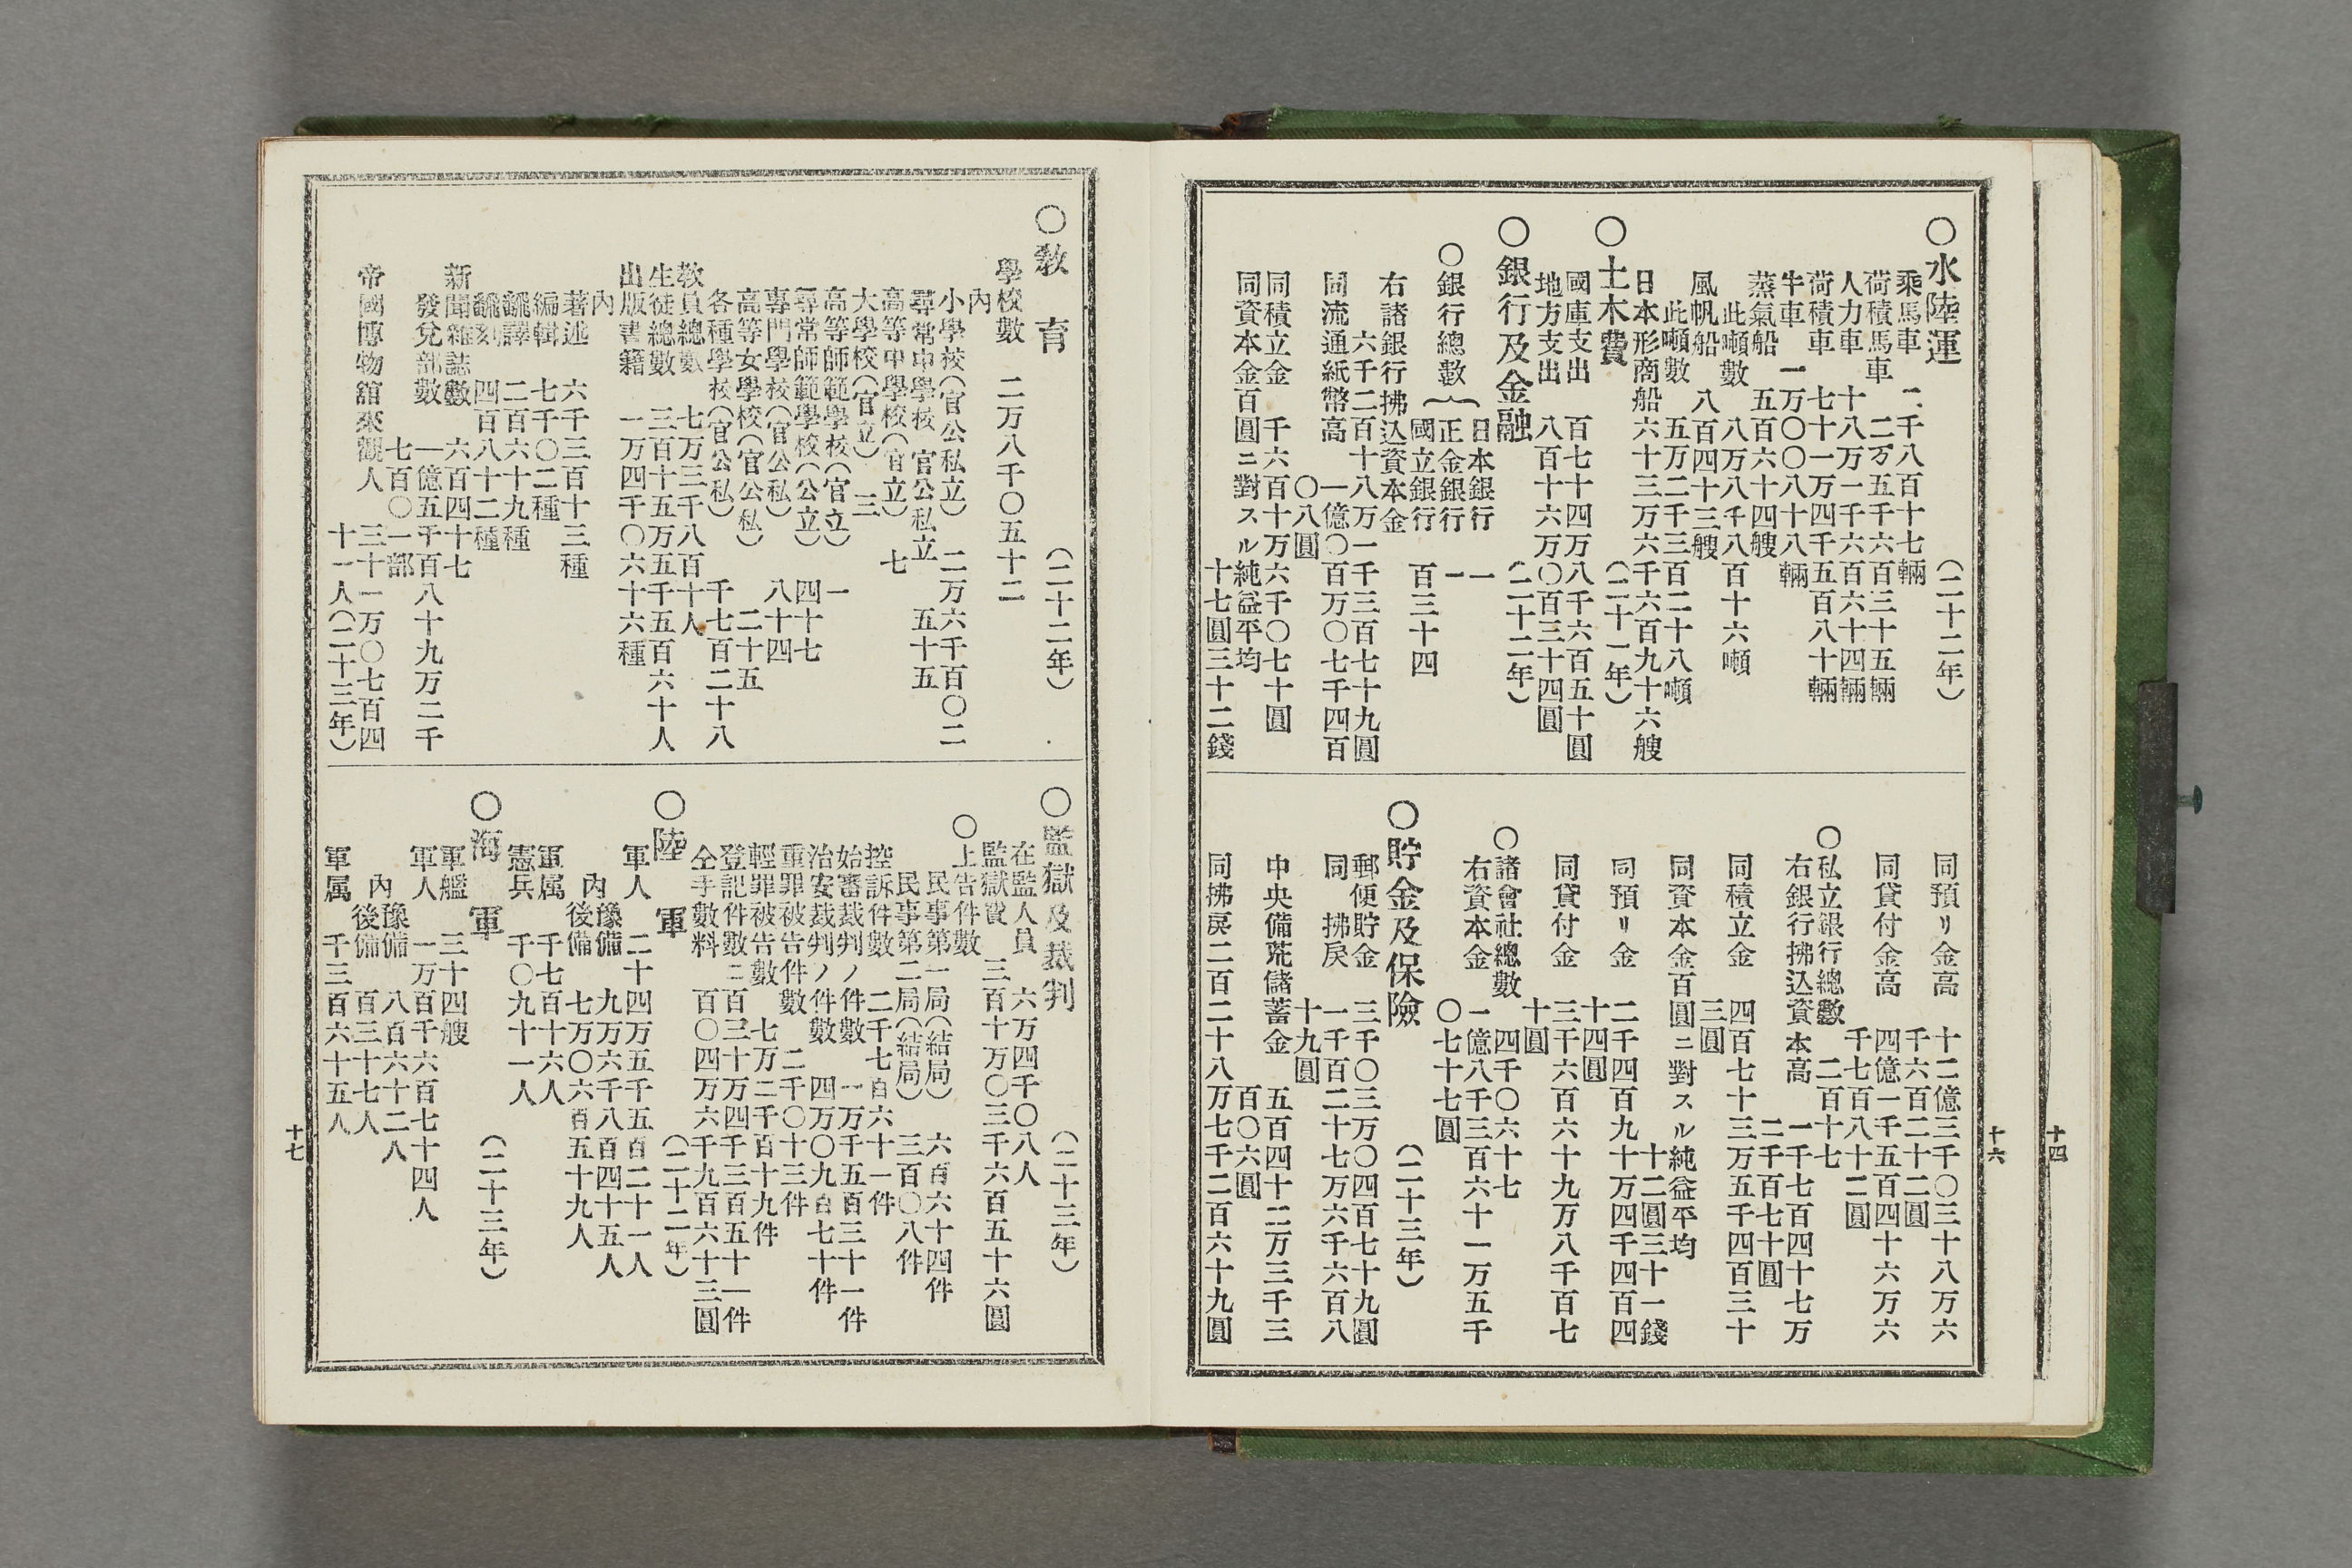 十四
十六
〇水陸運　（二十二年）
乘馬車　二千八百十七輛
荷積馬車　二万五千六百三十五輛
人力車　十八万一千六百六十四輛
荷積車　七十一万四千五百八十輛
牛車　一万〇〇八十八輛
蒸氣船　五百六十四艘
此噸數　八万八千八百十六噸
風帆船　八百四十三艘
此噸數　五万二千三百二十八噸
日本形商船　六十三万六千六百九十六艘
〇土木費　（二十一年）
國庫支出　百七十四万八千六百五十圓
地方支出　八百十六万〇百三十四圓
〇銀行及金融　（二十二年）
〇銀行總數
日本銀行　一
正金銀行　一
國立銀行　百三十四
右諸銀行拂込資本金
六千二百十八万一千三百七十九圓
同流通紙幣高　一億〇百万〇七千四百
〇八圓
同積立金　千六百十万六千〇七十圓
同資本金百圓ニ對スル純益平均
十七圓三十二錢
同預リ金高　十二億三千〇三十八万六
千六百二十二圓
同貸付金高　四億一千五百四十六万六
千七百八十二圓
〇私立銀行總數　二百十七
右銀行拂込資本高　一千七百四十七万
二千百七十圓
同積立金　四百七十三万五千四百三十
三圓
同資本金百圓ニ對スル純益平均
十二圓三十一錢
同預リ金　二千四百九十万四千四百四
十四圓
同貸付金　三千六百六十九万八千百七
十圓
〇諸會社總數　四千〇六十七
右資本金　一億八千三百六十一万五千
〇七十七圓
〇貯金及保險　（二十三年）
郵便貯金　三千〇三万〇四百七十九圓
同拂戾　一千百二十七万六千六百八
十九圓
中央備荒儲蓄金　五百四十二万三千三
百〇六圓
同拂戾二百二十八万七千二百六十九圓
〇敎育　（二十二年）
學校數　二万八千〇五十二
內
小學校（官公私立）　二万六千百〇二
尋常中學校　官公私立　五十五
高等中學校（官立）　七
大學校（官立）　三
高等師範學校（官立）　一
尋常師範學校（公立）　四十七
專門學校（官公私）　八十四
高等女學校（官公私）　二十五
各種學校（官公私）　千七百二十八
敎員總數　七万三千八百十人
生徒總數　三百十五万五千五百六十人
出版書籍　一万四千〇六十六種
內
著述　六千三百十三種
編輯　七千〇二種
飜譯　二百六十九種
飜刻　四百八十二種
新聞雜誌數　六百四十七
發兌部數　一億五千百八十九万二千
七百〇一部
帝國博物館來觀人　三十一万〇七百四
十一人（二十三年）
〇監獄及裁判　（二十三年）
在監人員　六万四千〇八人
監獄費　三百十万〇三千六百五十六圓
〇上告件數
民事第一局（結局）　六百六十四件
民事第二局（結局）　三百〇八件
控訴件數　二千七百六十一件
始審裁判ノ件數　一万千五百三十一件
治安裁判ノ件數　四万〇九百七十件
重罪被告件數　二千〇十三件
輕罪被告數　七万二千百十九件
登記件數　二百三十万四千三百五十一件
仝手數料　百〇四万六千九百六十三圓
〇陸軍　（二十二年）
軍人　二十四万五千五百二十一人
內　豫備　九万六千八百四十五人
後備　七万〇六百五十九人
軍属　千七百十六人
憲兵　千〇九十一人
〇海軍　（二十三年）
軍艦　三十四艘
軍人　一万百千六百七十四人
內　豫備　八百六十二人
後備　百三十七人
軍属　千三百六十五人
十七